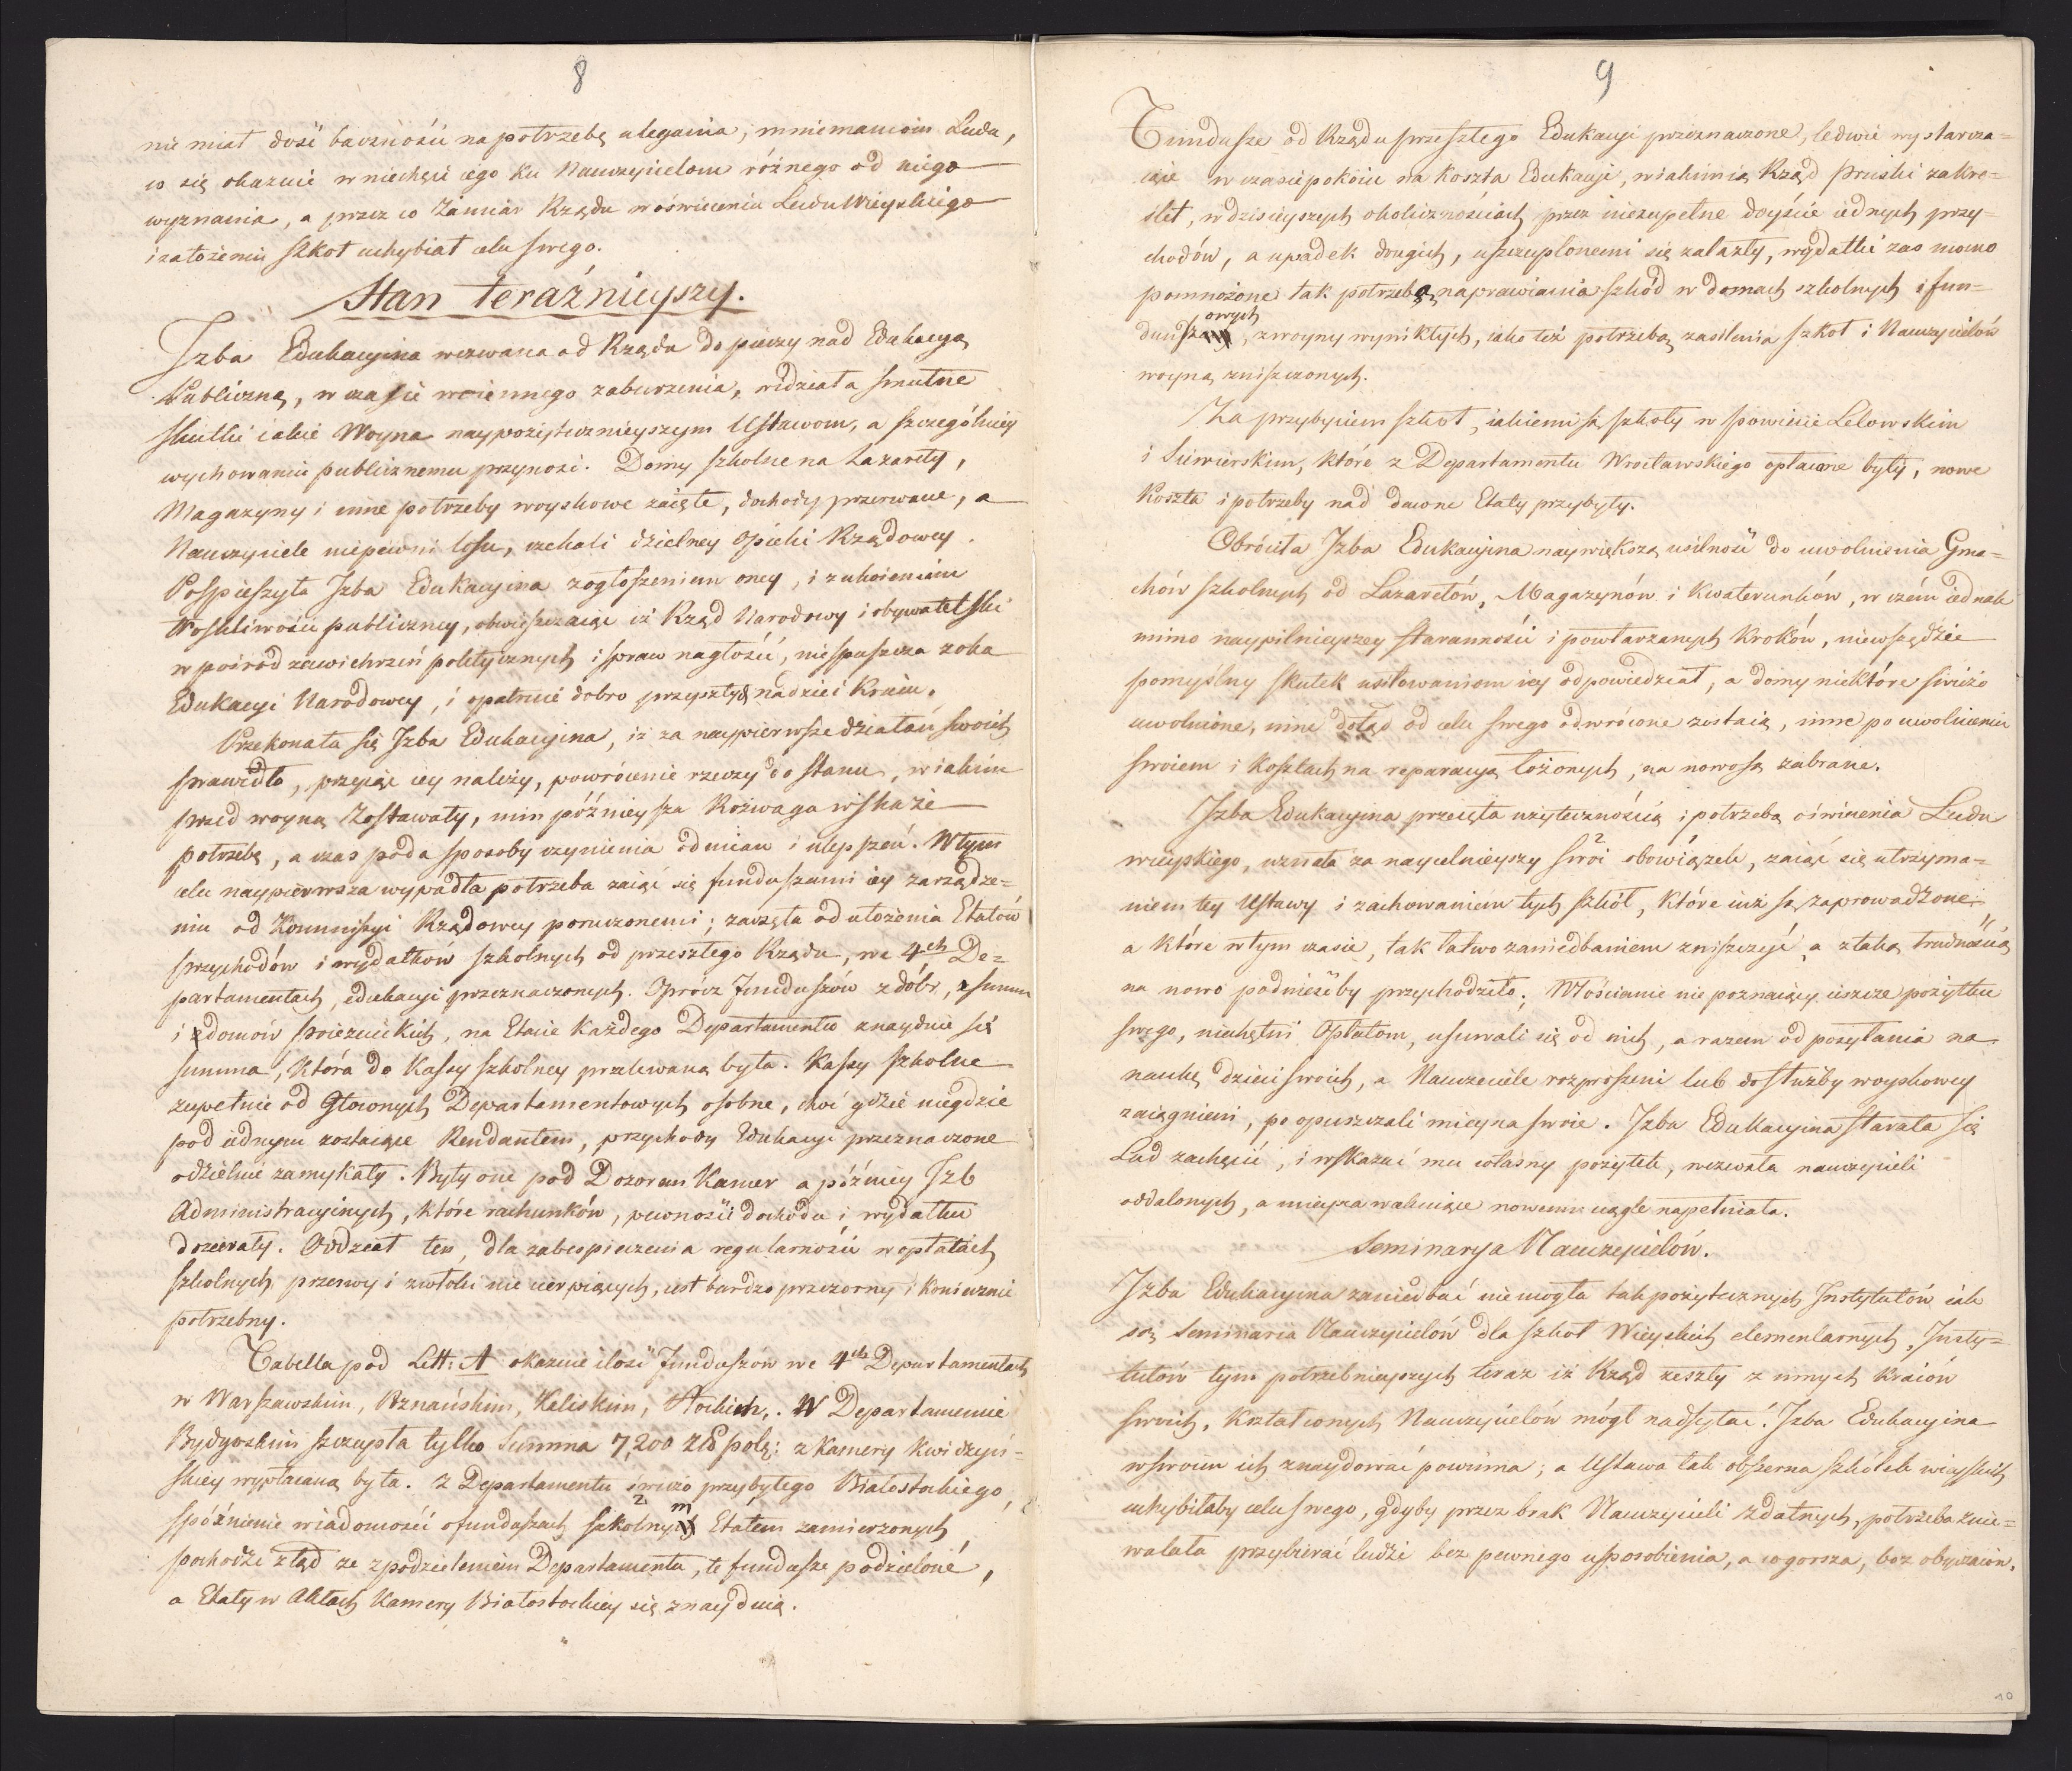 8
nie miał dość baczności na potrzebę ulegania, mniemaniom Ludu,
co się okazuie w niechęci iego ku Nauczycielom różnego od niego
wyznania, a przez co Zamiar Rządu w oświeceniu Ludu Wieyskiego
i założeniu szkół uchybiał celu swego.
Stan teraźnieyszy.
Izba Edukacyina wezwana od Rządu do pieczy nad Edukacyą
Publiczną, w czasie woiennego zaburzenia, widziała smutne
skutki iakie Woyna naypożytecznieyszym Ustawom, a szczególniey
wychowaniu publicznemu przynosi. Domy szkolne na Lazarety,
Magazyny i inne potrzeby woyskowe zaięte, dochody przerwane, a
Nauczyciele niepewni losu, czekali dzielney opieki Rządowey.
Pospieszyła Izba Edukacyina z ogłoszeniem oney, i z ukoieniem
troskliwości publiczney, obwieszczaiąc iż Rząd Narodowy i obywatelski
w pośród zawichrzeń politycznych i spraw nagłości, niespuszcza z oka
Edukacyi Narodowey, i opatruie dobro przyszłey nadziei Kraiu.
Przekonała się Izba Edukacyina, iż za naypierwsze działań swoich
prawidło, przyiąć iey należy, powrócenie rzeczy do stanu, w iakim
przed woyną Zostawały, nim późnieysza Rozwaga wskaże
potrzebę, a czas poda sposoby czynienia odmian i ulepszeń. W tym
celu naypierwsza wypadła potrzeba zaiąć się funduszami iey zarządze=
niu od Kommissyi Rządowey poruczonemi; zaczęła od ułożenia Etatów
przychodów i wydatków szkolnych od przeszłego Rządu, we 4ch De=
partamentach, edukacyi przeznaczonych. Oprócz Funduszów z dóbr, z summ
i z domów Poiezuickich, na Etacie Każdego Departamentu znayduie się
summa, która do Kassy szkolney przelewaną była. Kassy szkolne
zupełnie od Głównych Departamentowych osobne, choć gdzie niegdzie
pod iednym zostaiące Rendantem, przychody Edukacyi przeznaczone
odzielnie zamykały. Były one pod Dozorem Kamer a późniey Izb
Administracyinych, które rachunków, pewności dochodu i wydatku
dozierały. Oddział ten, dla zabespieczenia regularności w opłatach
szkolnych przerwy i zwłoki nie cierpiących, iest bardzo przezorny i koniecznie
potrzebny.
Tabella pod Litt: A okazuie ilość Funduszów we 4ch Departamentach
w Warszawskim, Poznańskim, Kaliskim, Płockim. W Departamencie
Bydgoskim szczupła tylko Summa 7,200 złł polś: z Kamery Kwidzyń=
skiey wypłacaną była. Z Departamentu świeżo przybyłego Białostockiego,
spóźnienie wiadomości o funduszach szkolnym Etatem zamierzonych,
pochodzi ztąd ze z podzieleniem Departamentu, te fundusze podzielone,
a Etaty w Aktach Kamery Białostockiey się znayduią.
9
Fundusze od Rządu przeszłego Edukacyi przeznaczone, ledwie wystarcza=
iące w czasie pokoiu na koszta Edukacyi, w iakim ią Rząd pruski zakre=
ślił, w dzisieyszych okolicznościach przez niezupełne doyście iednych przy=
chodów, a upadek drugich, uszczuplonemi się zalazły, wydatki zaś nowo
pomnożone tak potrzebą naprawiania szkód w domach szkolnych i fun=
duszowych, z woyny wynikłych, iako też potrzebą zasilenia szkół i Nauczycielów
woyną zniszczonych.
Za przybyciem szkół, iakiemi są szkoły w powiecie Lelowskim
i Siewierskim, które z Departamentu Wrocławskiego opłacane były, nowe
Koszta i potrzeby nad dawne Etaty przybyły.
Obróciła Izba Edukacyina naywiększą usilność do uwolnienia Gma=
chów szkolnych od Lazaretów, Magazynów i Kwaterunków, w czém iednak
mimo naypilnieyszey staranności i powtarzanych kroków, niewszędzie
pomyślny skutek usiłowaniom iey odpowiedział, a domy niektóre świeżo
uwolnione, inne dotąd od celu swego odwrócone zostaią, inne po uwolnieniu
swoiem i kosztach na reparacyą łożonych, na nowo są zabrane.
Izba Edukacyina przeięta użytecznością i potrzebą oświecenia Ludu
wieyskiego, uznała za naycelnieyszy swóy obowiązek, zaiąć się utrzyma=
niem tey Ustawy i zachowaniem tych szkół, które iuż są zaprowadzone,
a które w tym czasie, tak łatwo zaniedbaniem zniszczyć, a z taką trudnością
na nowo podnieść by przychodziło; Włościanie nie poznaiący ieszcze pożytku
swego, niechętni Opłatom, usuwali się od nich, a razem od posyłania na
naukę dzieci swoich, a Nauczyciele rozproszeni lub do służby woyskowey
zaciągnieni, po opuszczali mieysca swoie. Izba Edukacyina starała się
Lud zachęcić, i wskazać mu własny pożytek, wezwała nauczycieli
oddalonych, a mieysca wakuiące nowemi ciągle napełniała.
Seminarya Nauczycielów.
Izba Edukacyina zaniedbać nie mogła tak pożytecznych Instytutów iak
są Seminaria Nauczycielów dla szkół Wieyskich elementarnych, Insty=
tutów tym potrzebnieyszych teraz iż Rząd zeszły z innych kraiów
swoich, kształconych Nauczycielów mógł nadsyłać. Izba Edukacyina
w swoim ich znaydować powinna; a Ustawa tak obszerna szkółek wieyskich
uchybiłaby celu swego, gdyby przez brak Nauczycieli zdatnych, potrzeba znie=
walała przybierać ludzi bez pewnego usposobienia, a co gorsza, bez obyczaiów.
10